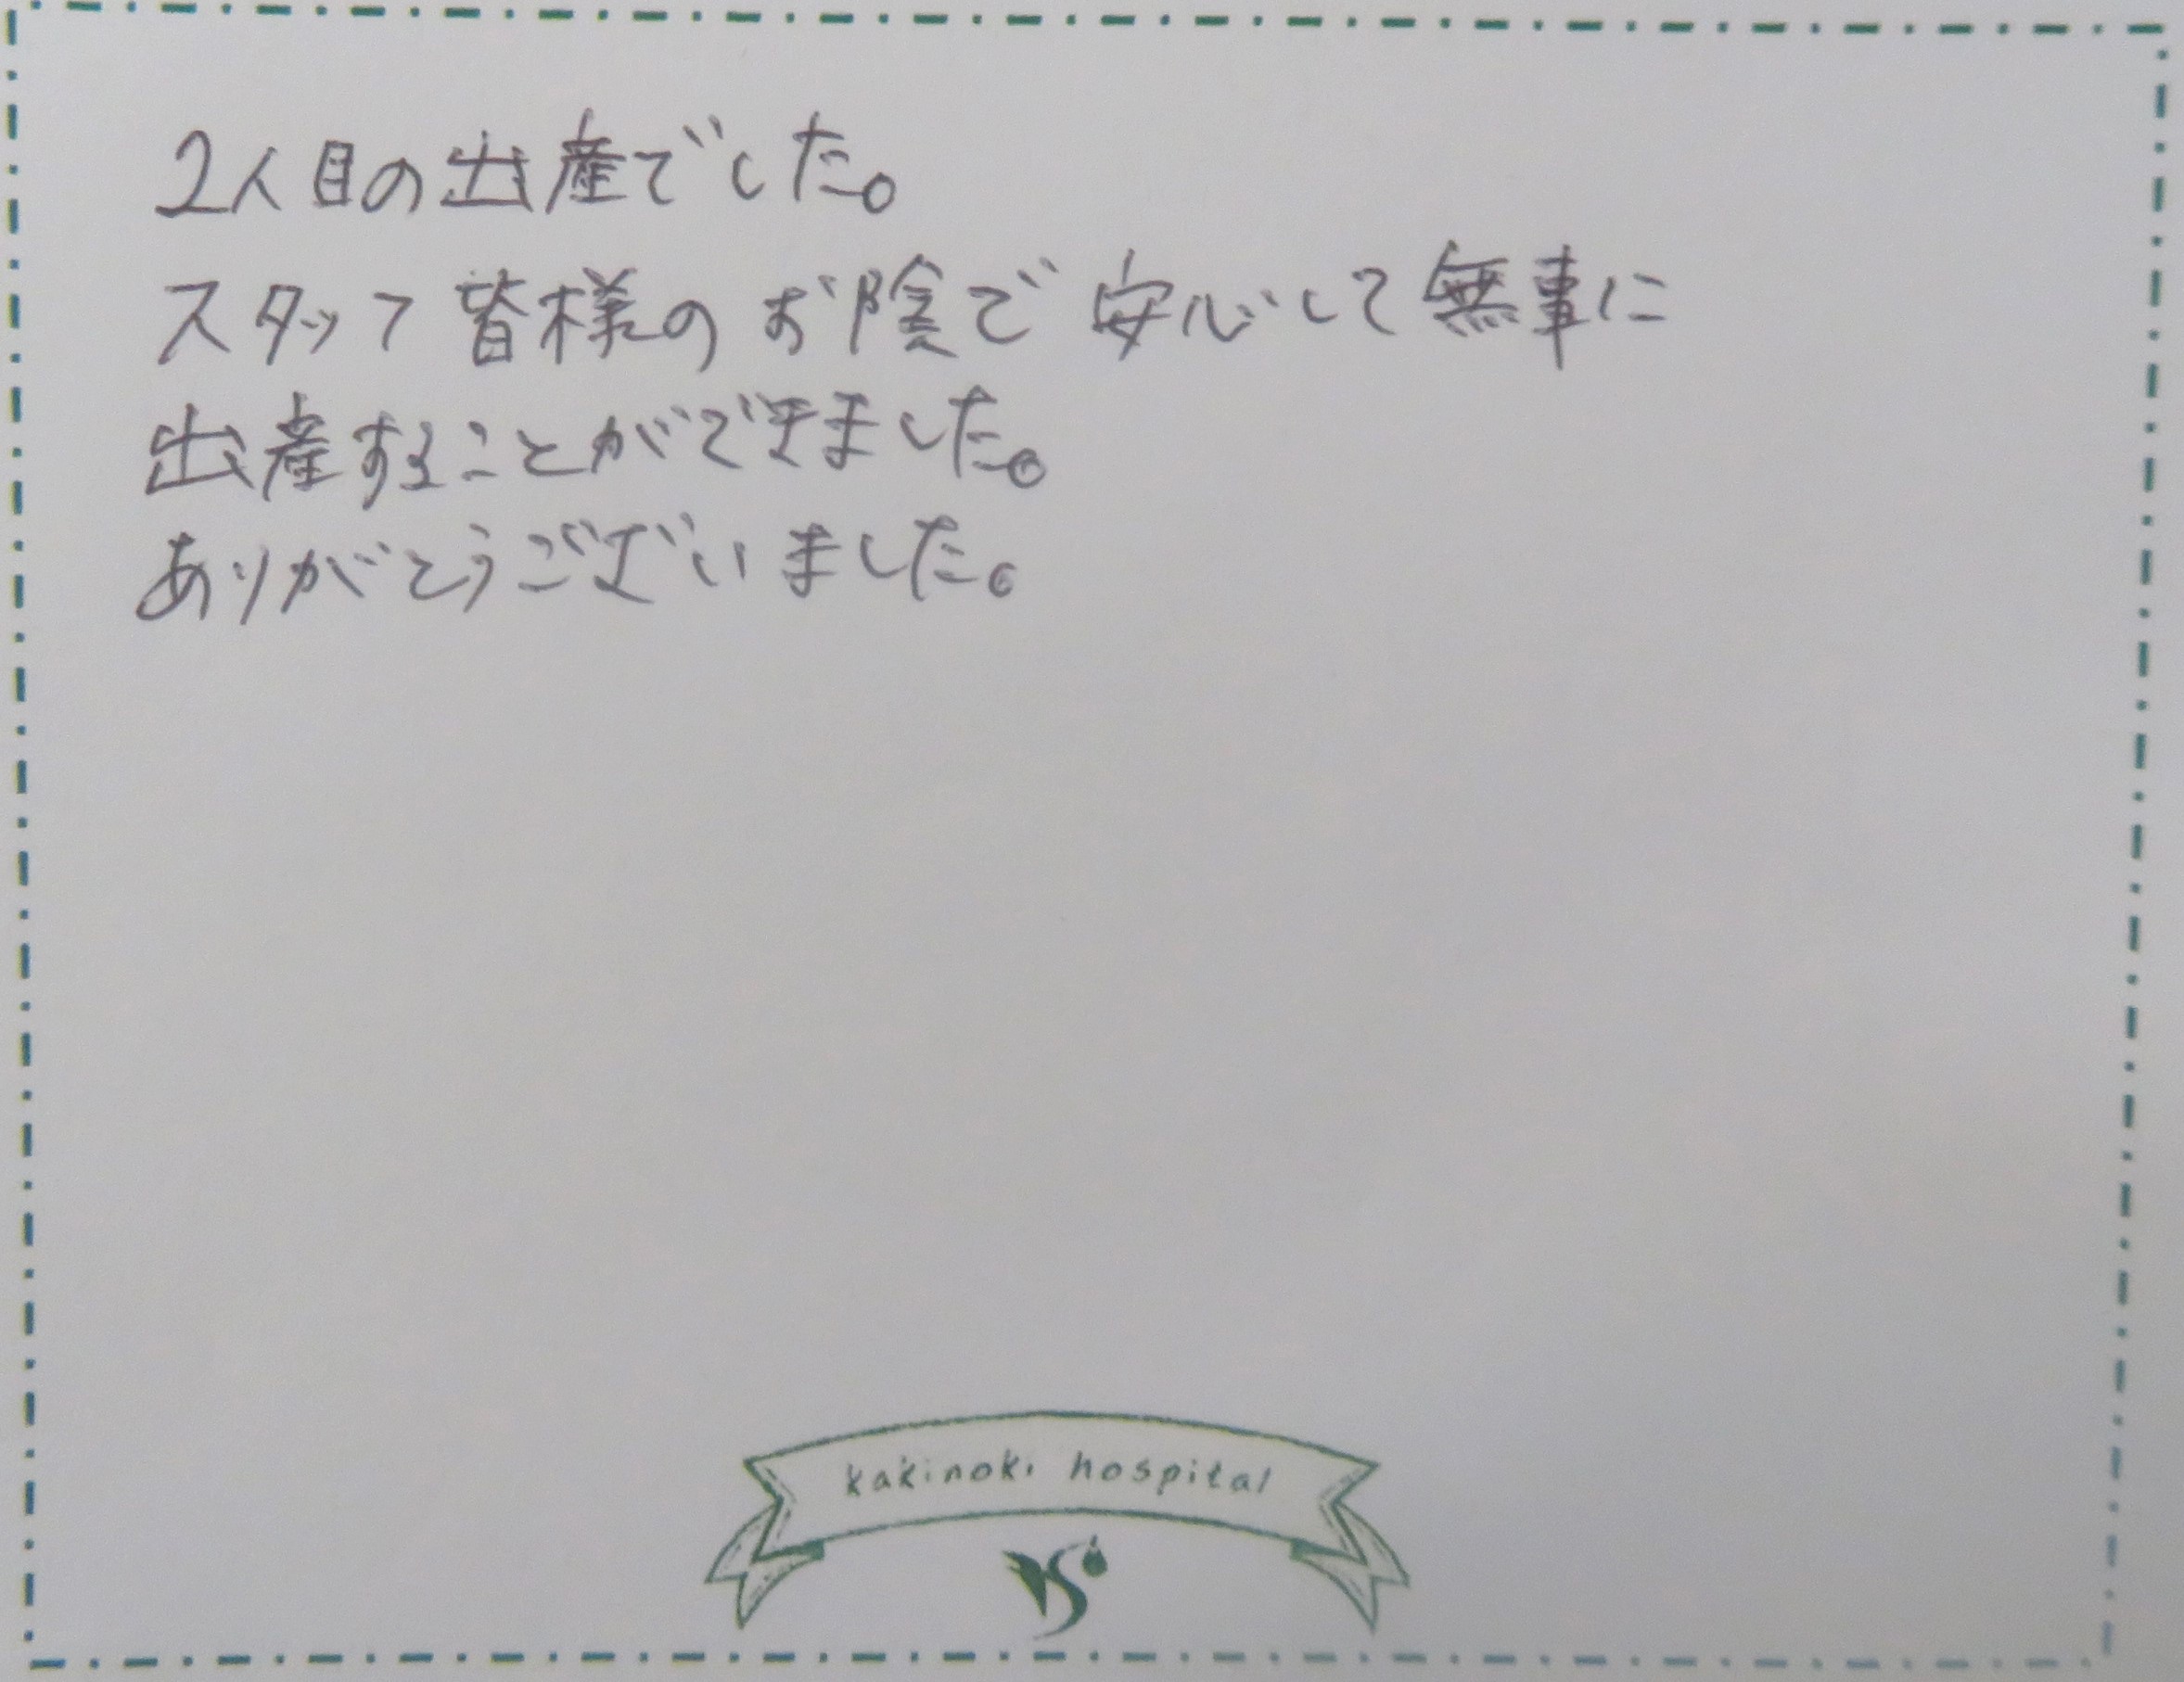 2人目の出産でした。
スタッフ皆様のお陰で安心して無事に
出産することができました。
ありがとうございました。
kakinoki hospital